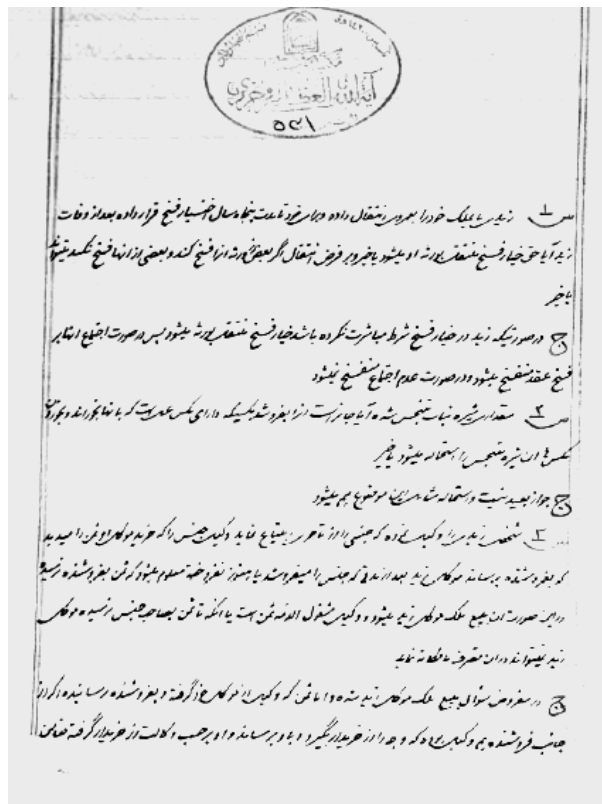 آیة الله العظمی
۵۳۱
س ۱ زیدی با ملک خود را بعمرو انتقال داده و برای خود تا مدت پنجاه سال اختیار فسخ قرار داده بعد از وفات
زید آیا حق خیار فسخ منتقل بورثه او میشود یا خیر و بر فرض انتقال اگر بعض ورثه از انها فسخ کند و بعضی از انها فسخ نکند میتواند
یا خیر
ج در صورتیکه زید در خیار فسخ شرط مباشرت نکرده باشد خیار فسخ منتقل بورثه میشود پس در صورت اجتماع انها بر
فسخ عقد منفسخ میشود و در صورت عدم اجتماع منفسخ نمیشود
س ۲ مقداری شیره نبات متنجس شده آیا جائز است از را بفروشد بکسیکه دارای مگس عسل است که بانها بخوراند و بخوردن
مگس ها ان شیره متنجس را استحاله میشود یا خیر
ج جواز بعید نیست و استحاله شامل این موضوع هم میشود
س ۳ شخص زید را وکیل نموده که جنسی را از تاجری ابتیاع نماید وکیل جنس را که خرید موکل او ثمن را میدهد
که بفروشنده برساند موکل زید بعد از مدتی که جنس را میفروشد یا هنوز نفروخته معلوم میشود که ثمن بفروشنده نرسیده
در این صورت ان مبیع ملک موکل زید میشود و وکیل مشغول الذمه ثمن است یا انکه تا ثمن بصاحب جنس نرسیده موکل
زید نمیتواند در ان متصرفه مالکانه نماید
ج در مفروض سؤال مبیع ملک موکل زید شده و اما ثمن که وکیل از موکل خود گرفته و بفروشنده نرسانیده اگر از
جانب فروشنده هم وکیل بوده که وجه را از خریدار بگیرد و باو برساند و او بر حسب وکالت از خریدار گرفته ضامن